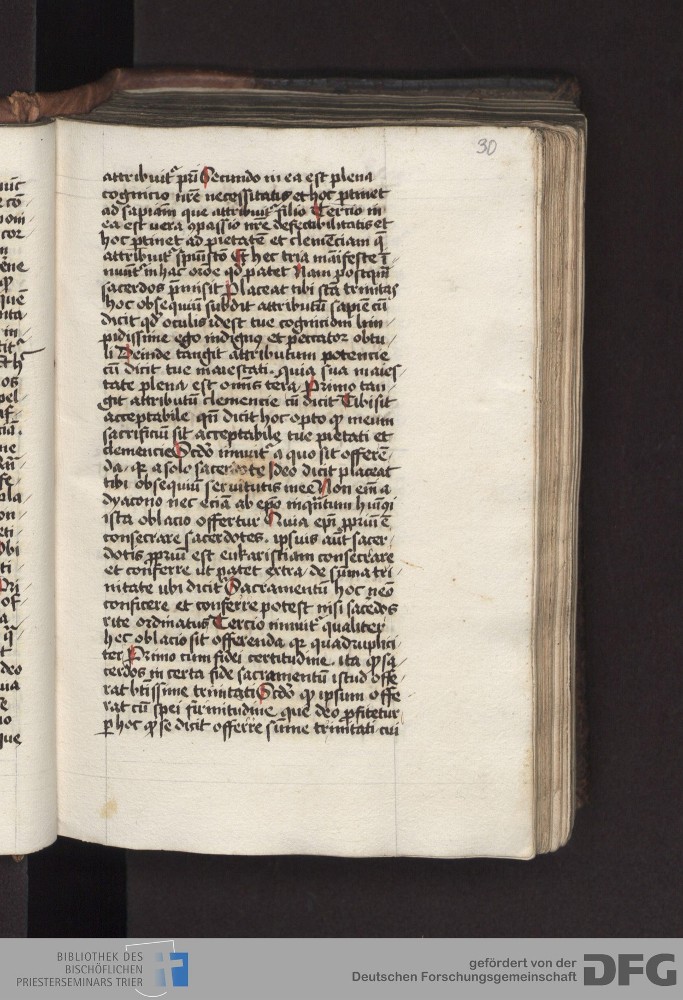 30
attribuit͛ pr̄i Secundo in ea est plena
cognicio nr̄e necessitatis et hoc ꝑtinet
ad sapiam̄ que attribuit͛ filio Tercio in
ea est vera ꝯpassio nr̄e defectibilitatis et
hoc ꝑtinet ad pietatē et clemēciam q̄
attribuit͛ spiritui sc̄o Et hec tria māifeste ī
nuūt͛ in hac orōe qd̓ patet Nam postqm̄
sacerdos p̄misit Placeat tibi scā trinitas
hoc obsequiū subdit attributū sapiē cū
dicit qd̓ oculis idest tue cognicioni lim
pidissime ego indignus et peccator obtu
li Deinde tangit attributum potencie
cū dicit tue maiestati. quia sua maies
tate plena est omīs terra Primo tan
git attributū clemencie cū dicit Tibi sit
acceptabile qn̄ dicit hoc opto ꝙ meum
sacrificiū sit acceptabile tue pietati et
clemencie Scd̓o innuit͛ a quo sit offerē
da. qꝛ a solo sacerdote Ideo dicit placeat
tibi obsequiū servitutis mee Non em̄ a
dyacono nec eciā ab ep̄o inqꝫtum hm̄oi
ista oblacio offertur Quia ep̄i ꝓprium ē
consecrare sacerdotes. ipsius aūt sacer
dotis ꝓprium est eukaristiam consecrare
et conferre ut patet extra de sūma tri
nitate ubi dicit͛ Sacramentū hoc nēo
conficere et conferre potest nisi sacerdos
rite ordinatus Tercio innuit͛ qualiter
hec oblacio sit offerenda qꝛ quadruplici
ter Primo cum fidei certitudine. ita ꝙ sa
cerdos in certa fide sacramentū istud offe
rat btīssime trinitati Scd̓o ꝙ ipsum offe
rat cū spei firmitudine que deo ꝓfitetur
ꝑ hoc ꝙ se dicit offerre sūme trinitati cui
BIBLIOTHEK DES
BISCHÖFLICHEN
PRIESTERSEMINARS TRIER
gefördert von der
Deutschen Forschungsgemeinschaft
DFG